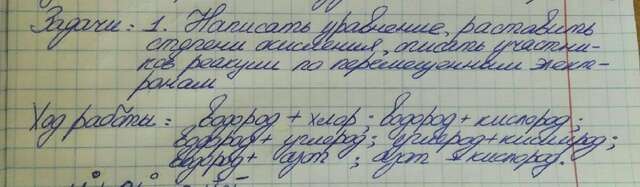 Задачи: 1. Написать уравнение, раставить
степени окисления, описать участни-
ков реакции по перемещенным элект-
ронам
Ход работы: водород + хлор; водород + кислород;
водород + углерод; углерод + кислород;
водород + азот ; азот + кислород.